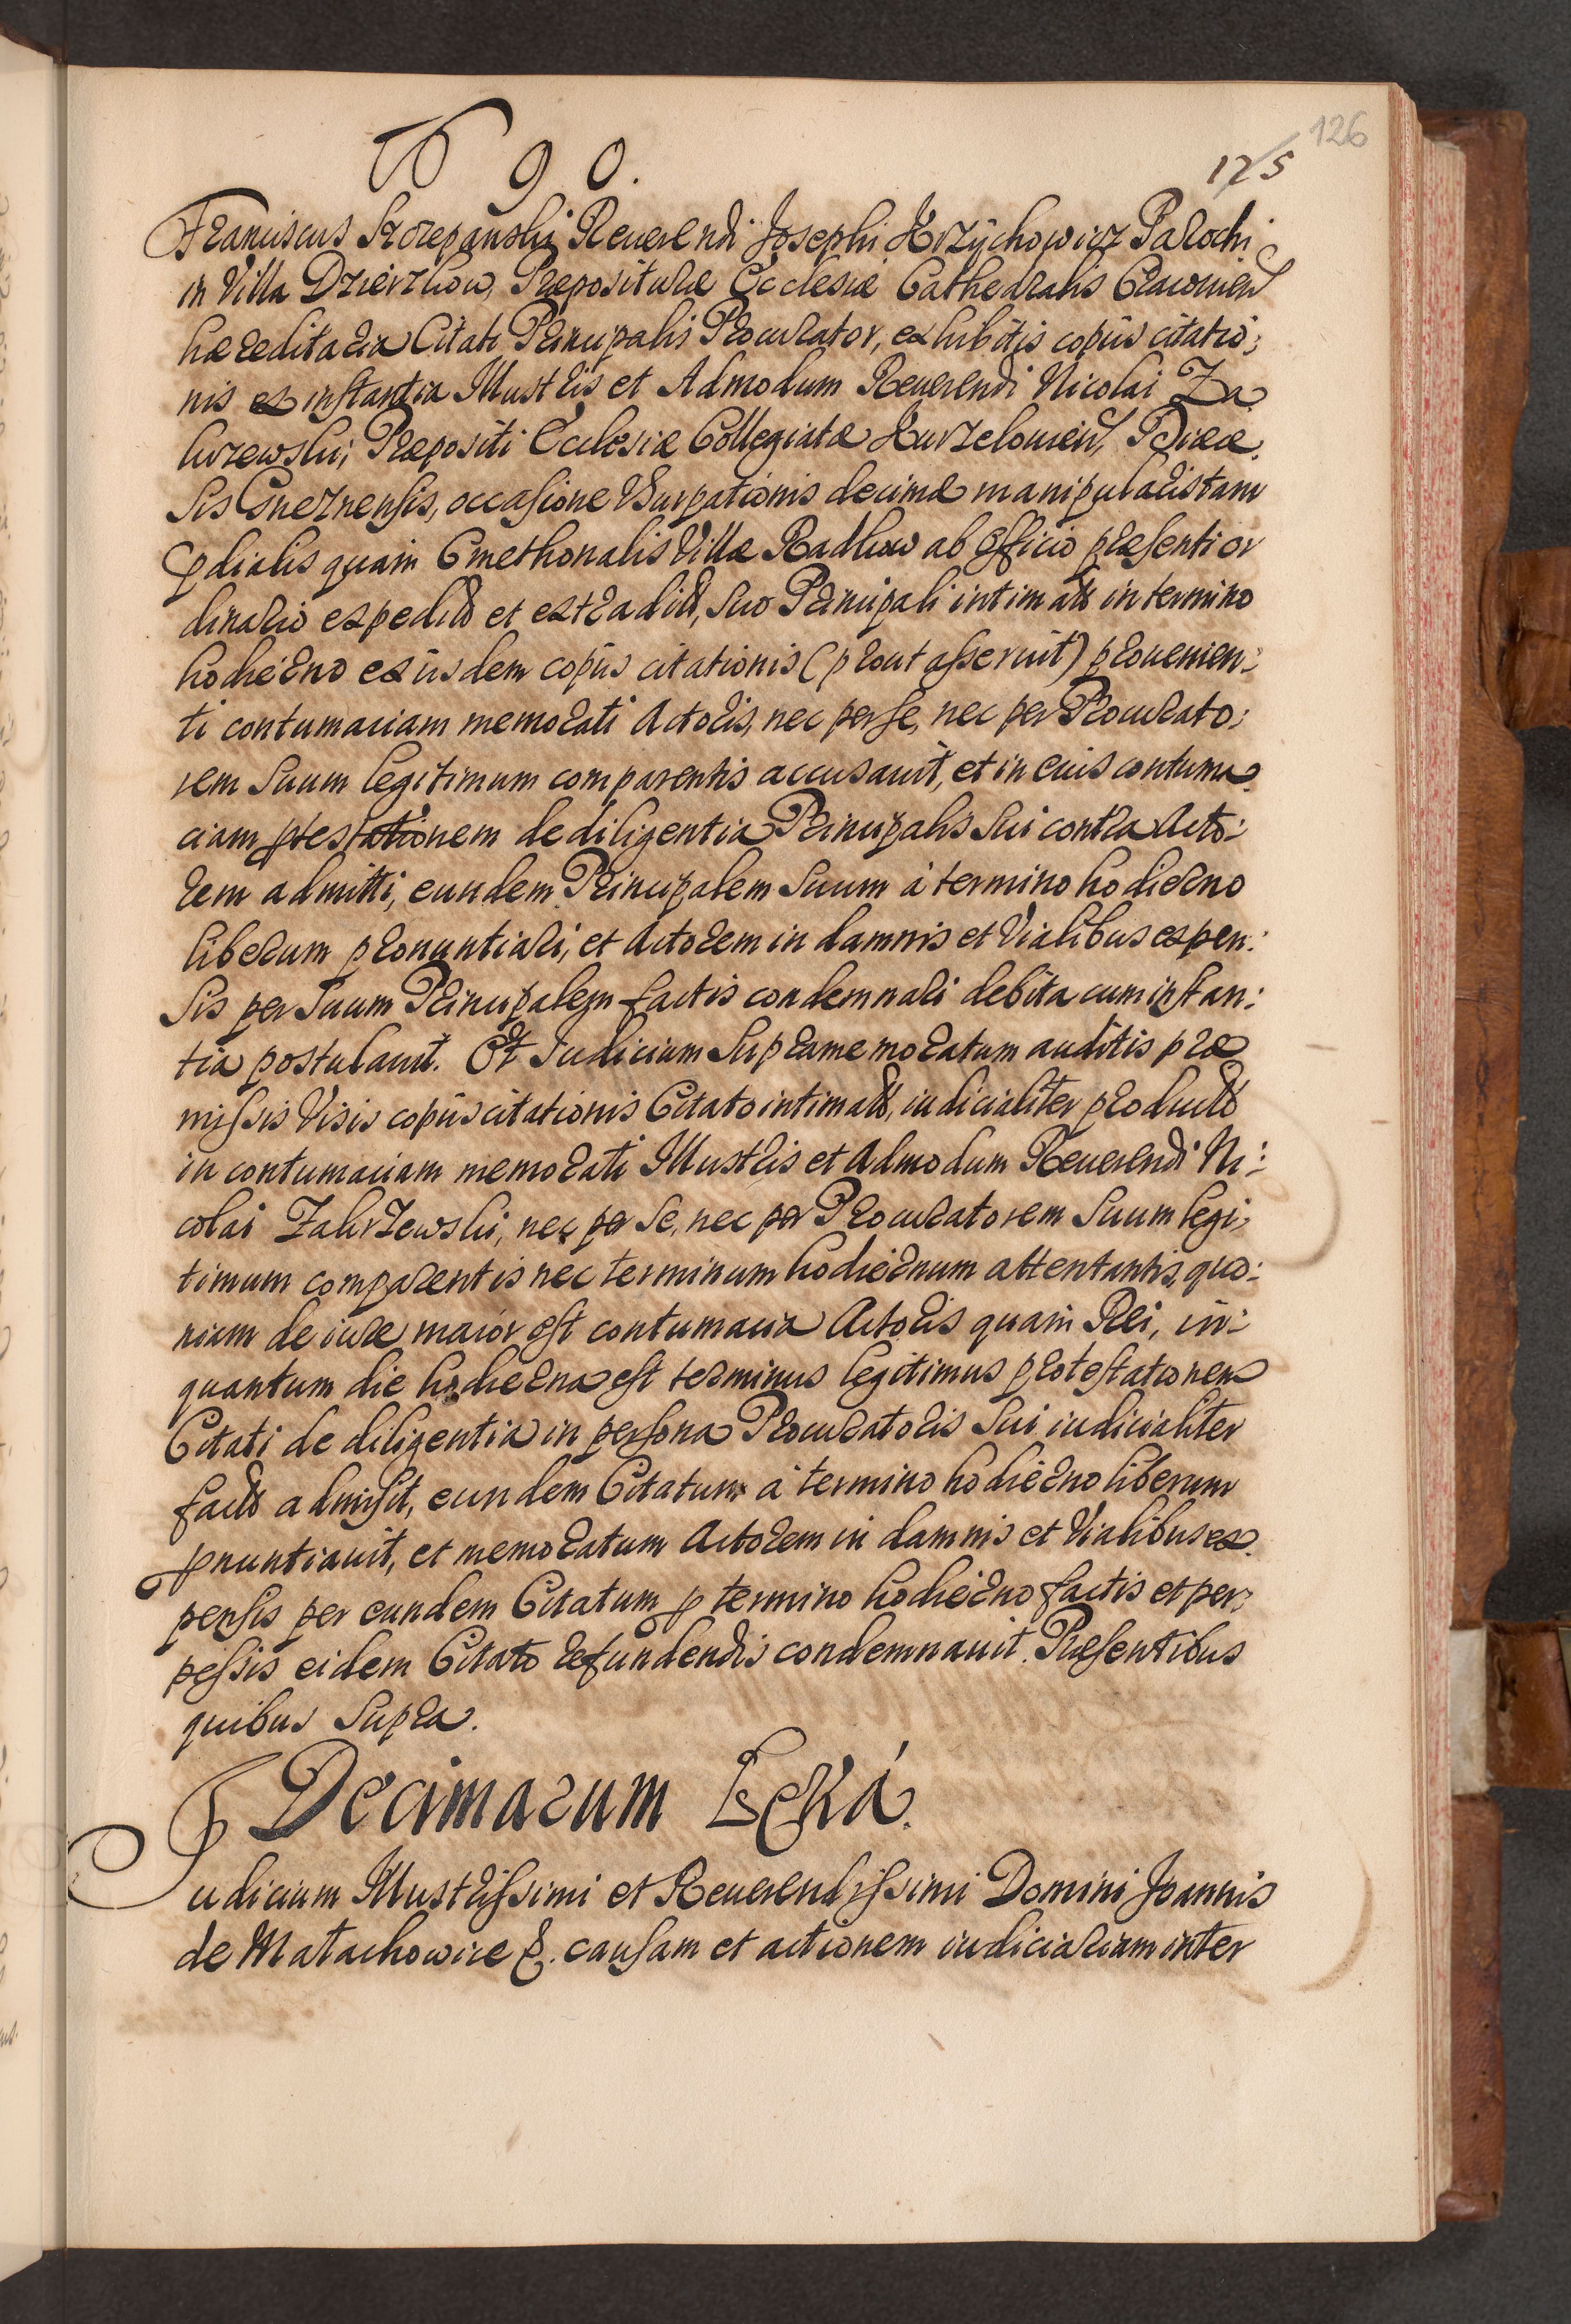 1690.
126
125
Franciscus Szczepanski Reuerendi Josephi Krzychowicz Parochi
in Villa Dzierzkow, Præposituræ Ecclesiæ Cathedralis Cracouien
hæreditaria Citati Principalis Procurator, exhibitis copijs citatio:
nis ex instantia Illustris et Admodum Reuerendi Nicolai Za
krzewski, Præpositi Ecclesiæ Collegiatæ Kurzelouien,
sis Gneznensis, occasione Vsurpationis decimæ manipularis tam
prdialis quam Cmethonalis Villæ Radkow ab officio præsenti or
dinario expeditis et extraditis, suo Principali intimatis in termino
hodierno ex ijsdem copijs citationis (prout asseruit) prouenien:
ti contumaciam memorati Actoris, nec per se, nec per Procurato:
rem Suum legitimum comparentis accusauit, et in eius contuma
ciam protestationem de diligentia Principalis Sui contra Acto:
rem admitti, eundem Principalem Suum à termino hodierno
liberum pronuntiari, et Actorem in damnis et Vialibus expen:
sis per Suum Principalem factis condemnari debita cum instan:
tia postulauit. Et Iudicium Supramemoratum auditis præ
missis Visis copijs citationis Citato intimatis, iudicialiter productis
in contumaciam memorati Illustris et Admodum Reuerendi Ni:
colai Zakrzewski, nec per Se, nec per Procuratorem Suum legi:
timum comparentis nec terminum hodiernum attentantis, quo:
niam de iure maior est contumacia Actoris quam Rei, in:
quantum die hodierna est terminus legitimus protestationem
Citati de diligentia in persona Procuratoris Sui iudicialiter
factis admisit, eundem Citatum à termino hodierno liberum
pronuntiauit, et memoratum Actorem in damnis et Vialibus ex
pensis per eundem Citatum pro termino hodierno factis et per:
pessis eidem Citato refundendis condemnauit. Præsentibus
quibus Supra.
Decimarum Łęka.
Judicium Illustrissimi et Reuerendissimi Domini Joannis
de Małachowice &. causam et actionem iudiciariam inter